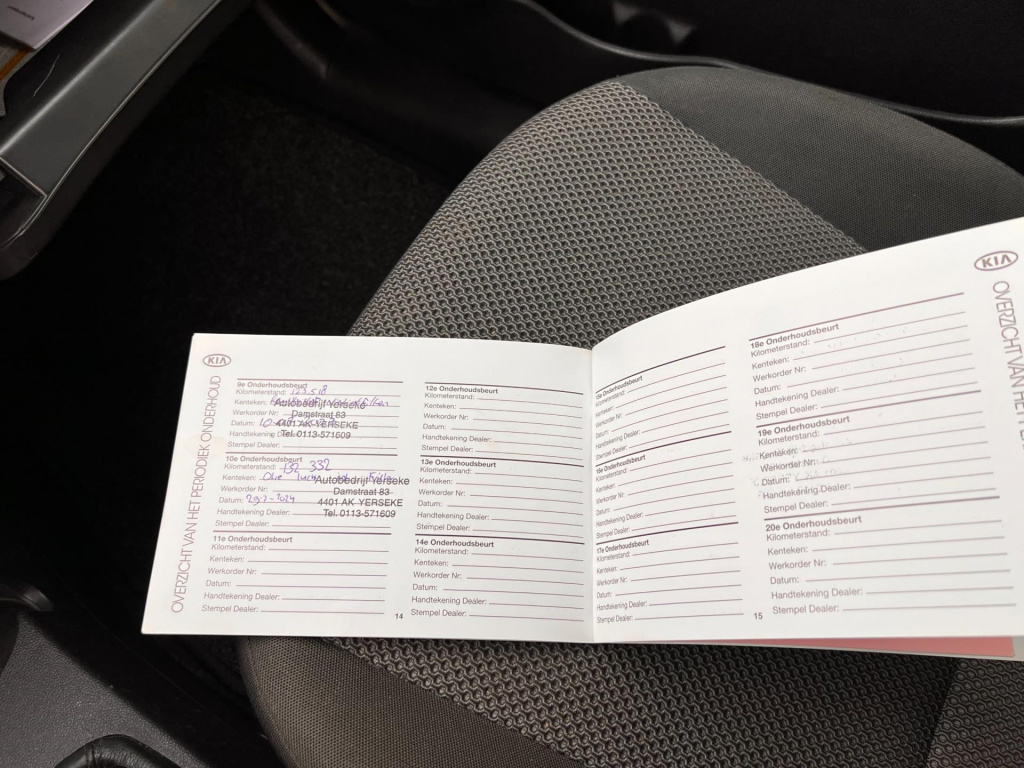 KIA
OVERZICHT VAN HET PERIODIEK ONDERHOUD
9e Onderhoudsbeurt
Kilometerstand: 123.518
Kenteken:
Autobedrijf Yerseke
Werkorder Nr:
Damstraat 83
Datum:
4401 AK YERSEKE
Handtekening
Tel. 0113-571609
Stempel Dealer:
10e Onderhoudsbeurt
Kilometerstand: 132 332
Kenteken: Olie
Autobedrijf Yerseke
Werkorder Nr:
Damstraat 83
Datum: 29-2-2024
4401 AK YERSEKE
Handtekening Dealer:
Tel. 0113-571609
Stempel Dealer:
11e Onderhoudsbeurt
Kilometerstand:
Kenteken:
Werkorder Nr:
Datum:
Handtekening Dealer:
Stempel Dealer:
12e Onderhoudsbeurt
Kilometerstand:
Kenteken:
Werkorder Nr:
Datum:
Handtekening Dealer:
Stempel Dealer:
13e Onderhoudsbeurt
Kilometerstand:
Kenteken:
Werkorder Nr:
Datum:
Handtekening Dealer:
Stempel Dealer:
14e Onderhoudsbeurt
Kilometerstand:
Kenteken:
Werkorder Nr:
Datum:
Handtekening Dealer:
Stempel Dealer:
14
15e Onderhoudsbeurt
Kilometerstand:
Kenteken:
Werkorder Nr:
Datum:
Handtekening Dealer:
Stempel Dealer:
16e Onderhoudsbeurt
Kilometerstand:
Kenteken:
Werkorder Nr:
Datum:
Handtekening Dealer:
Stempel Dealer:
17e Onderhoudsbeurt
Kilometerstand:
Kenteken:
Werkorder Nr:
Datum:
Handtekening Dealer:
Stempel Dealer:
18e Onderhoudsbeurt
Kilometerstand:
Kenteken:
Werkorder Nr:
Datum:
Handtekening Dealer:
Stempel Dealer:
19e Onderhoudsbeurt
Kilometerstand:
Kenteken:
Werkorder Nr:
Datum:
Handtekening Dealer:
Stempel Dealer:
20e Onderhoudsbeurt
Kilometerstand:
Kenteken:
Werkorder Nr:
Datum:
Handtekening Dealer:
Stempel Dealer:
15
KIA
OVERZICHT VAN HET